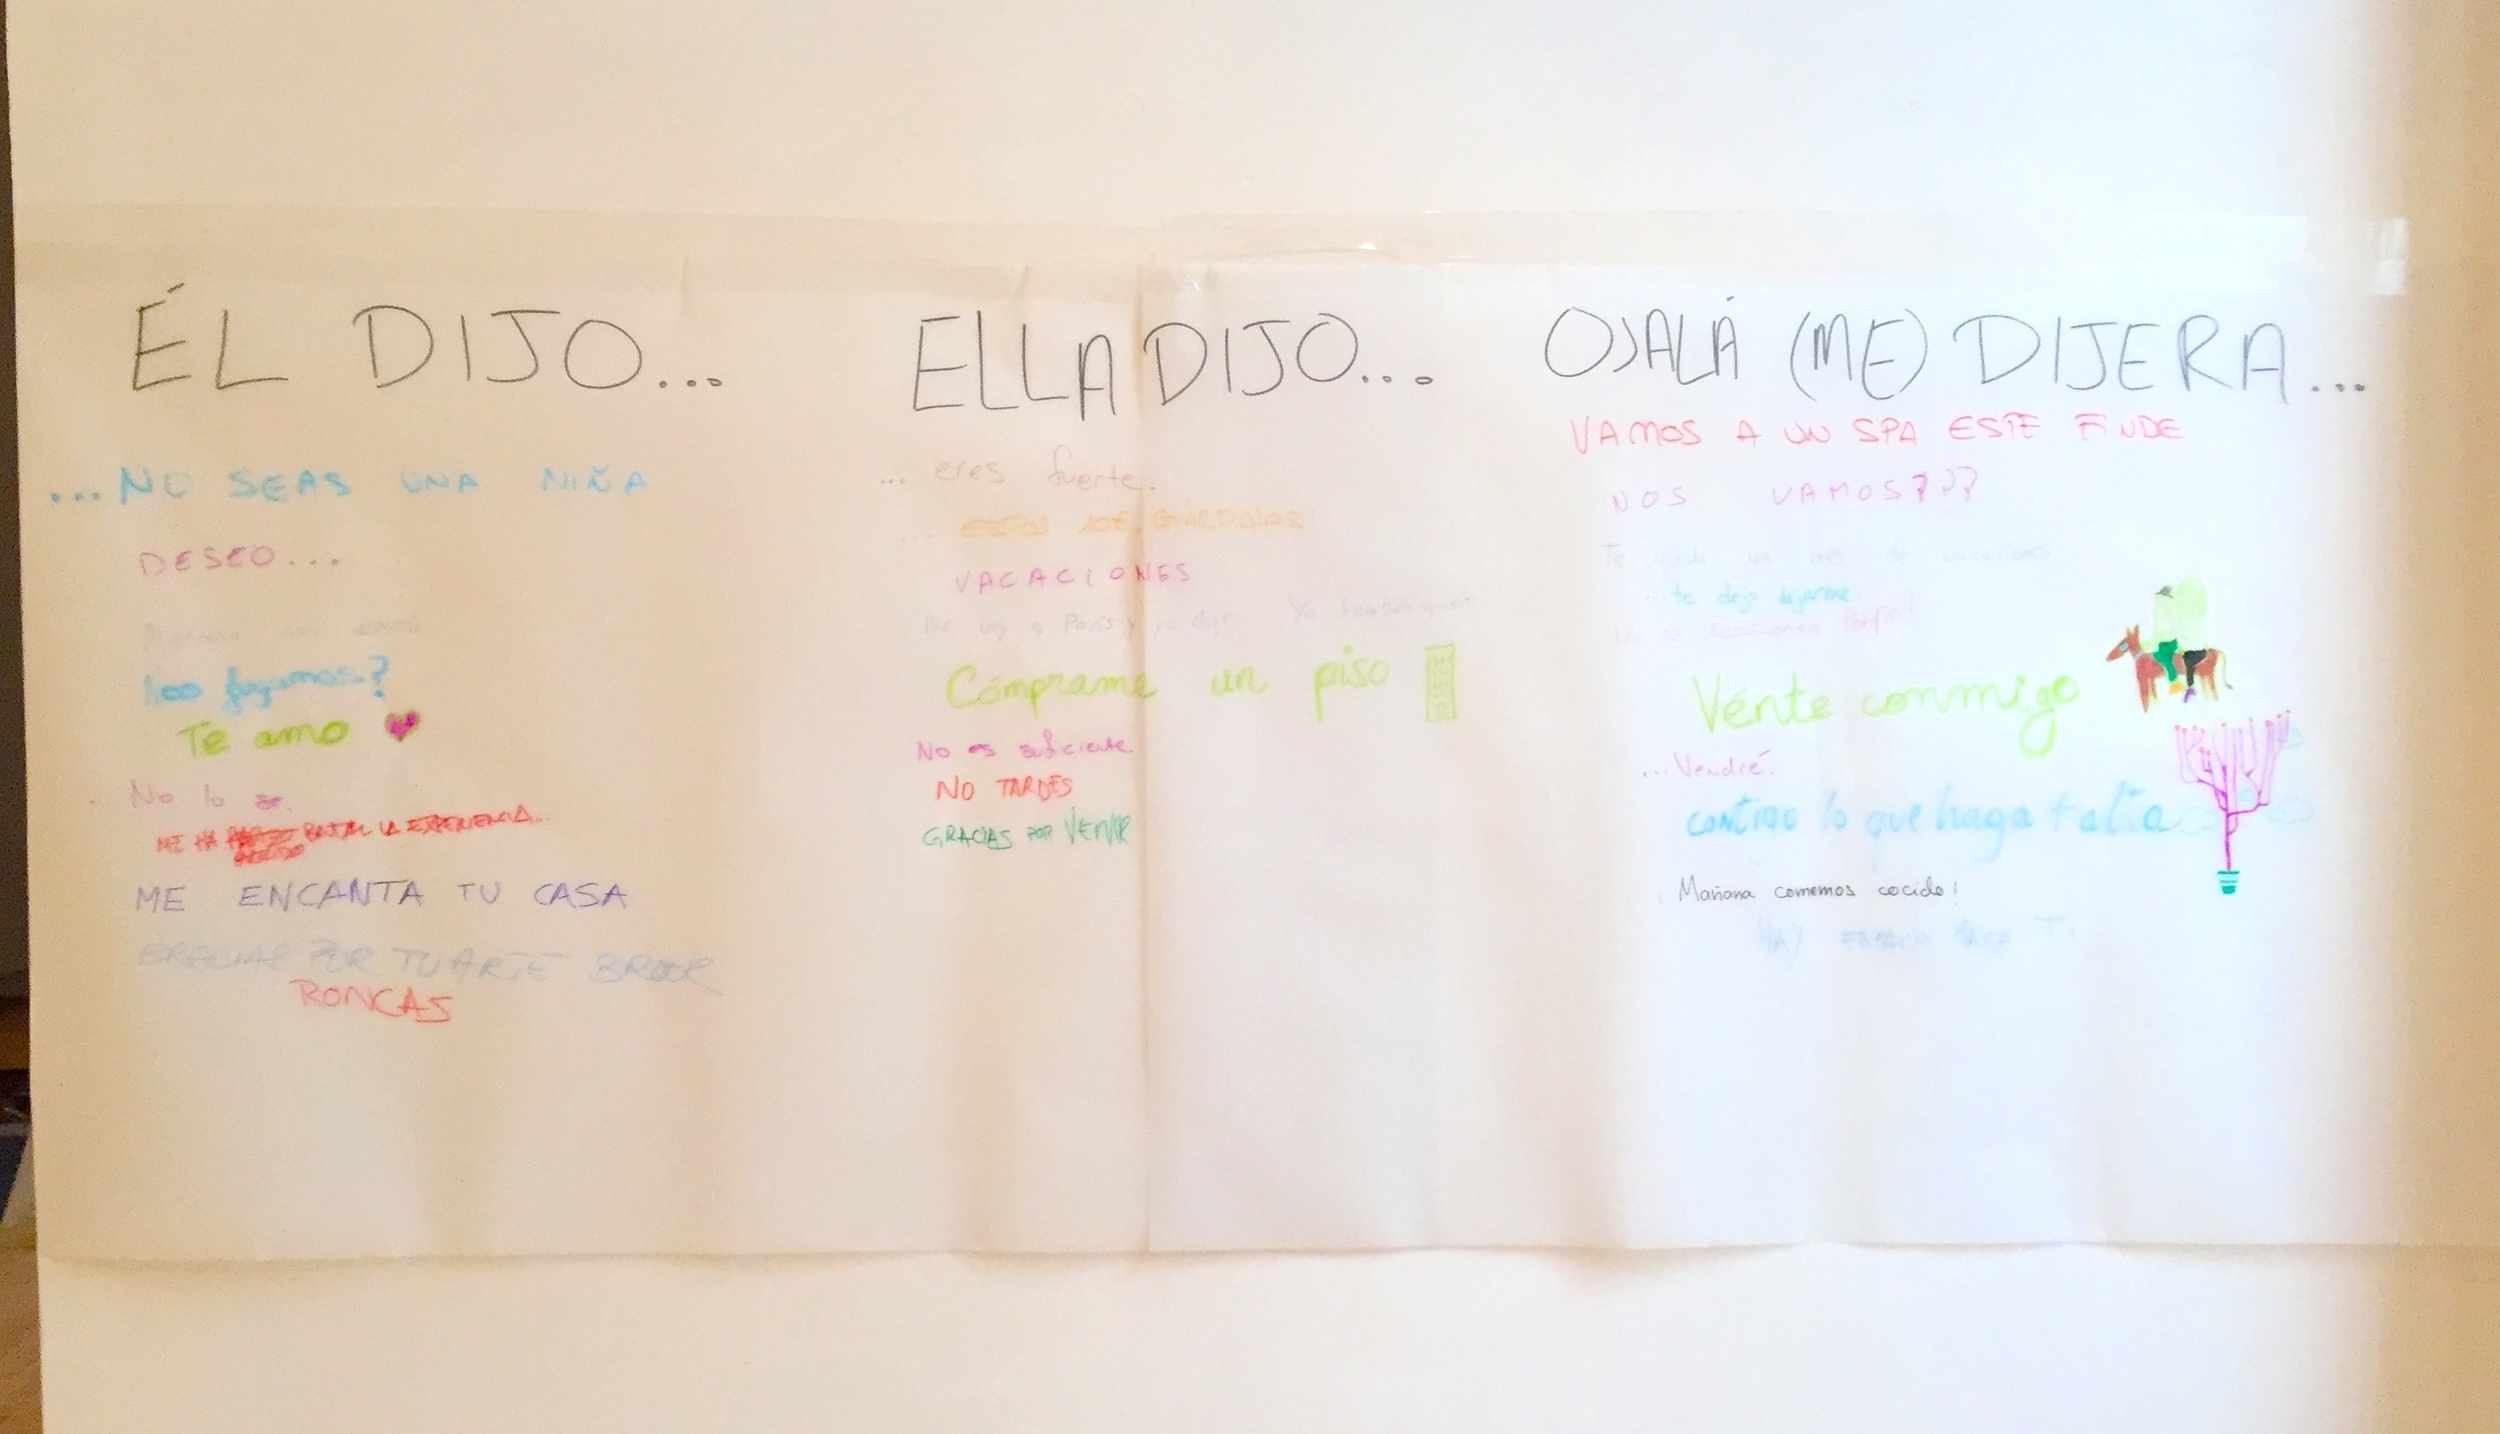 ÉL DIJO...
...NO SEAS UNA NIÑA
DESEO...
fugamos?
Te amo
... No lo se.
MI HA BRUTAL LA EXPERIENCIA...
ME ENCANTA TU CASA
GRACIAS POR TU ARTE
RONCAS
ELLA DIJO...
... eres fuerte.
... ESTOS 10€ GUÁRDALOS!
VACACIONES
Me voy a París y yo Yo también
Cómprame un piso
No es suficiente
NO TARDES
GRACIAS POR VENIR
OJALÁ (ME) DIJERA...
VAMOS A UN SPA ESTE FINDE
NOS VAMOS???
Te queda un mes de vacaciones
...te dejo dejarme
vacaciones Porfin!
Vénte conmigo
...Vendré.
contigo lo que haga falta
¡Mañana comemos cocido!
HAY ESPACIO PARA TI